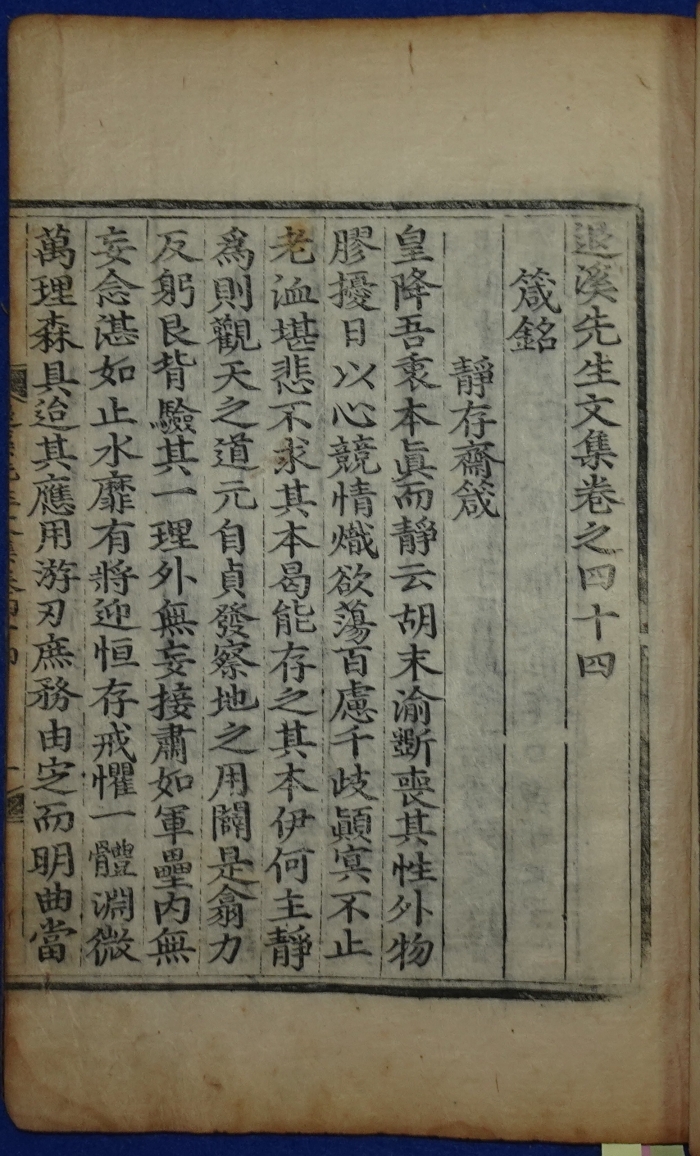 退溪先生文集卷之四十四
箴銘
靜存齋箴
皇降吾衷本眞而靜云胡末渝斲喪其性外物
膠擾日以心競情熾欲蕩百慮千歧顚冥不止
老洫堪悲不求其本曷能存之其本伊何主靜
爲則觀天之道元自貞發察地之用闢是翕力
反躬艮背驗其一理外無妄接肅如軍壘内無
妄念湛如止水靡有將迎恒存戒懼一體淵微
萬理森具迨其應用游刃庶務由定而明曲當